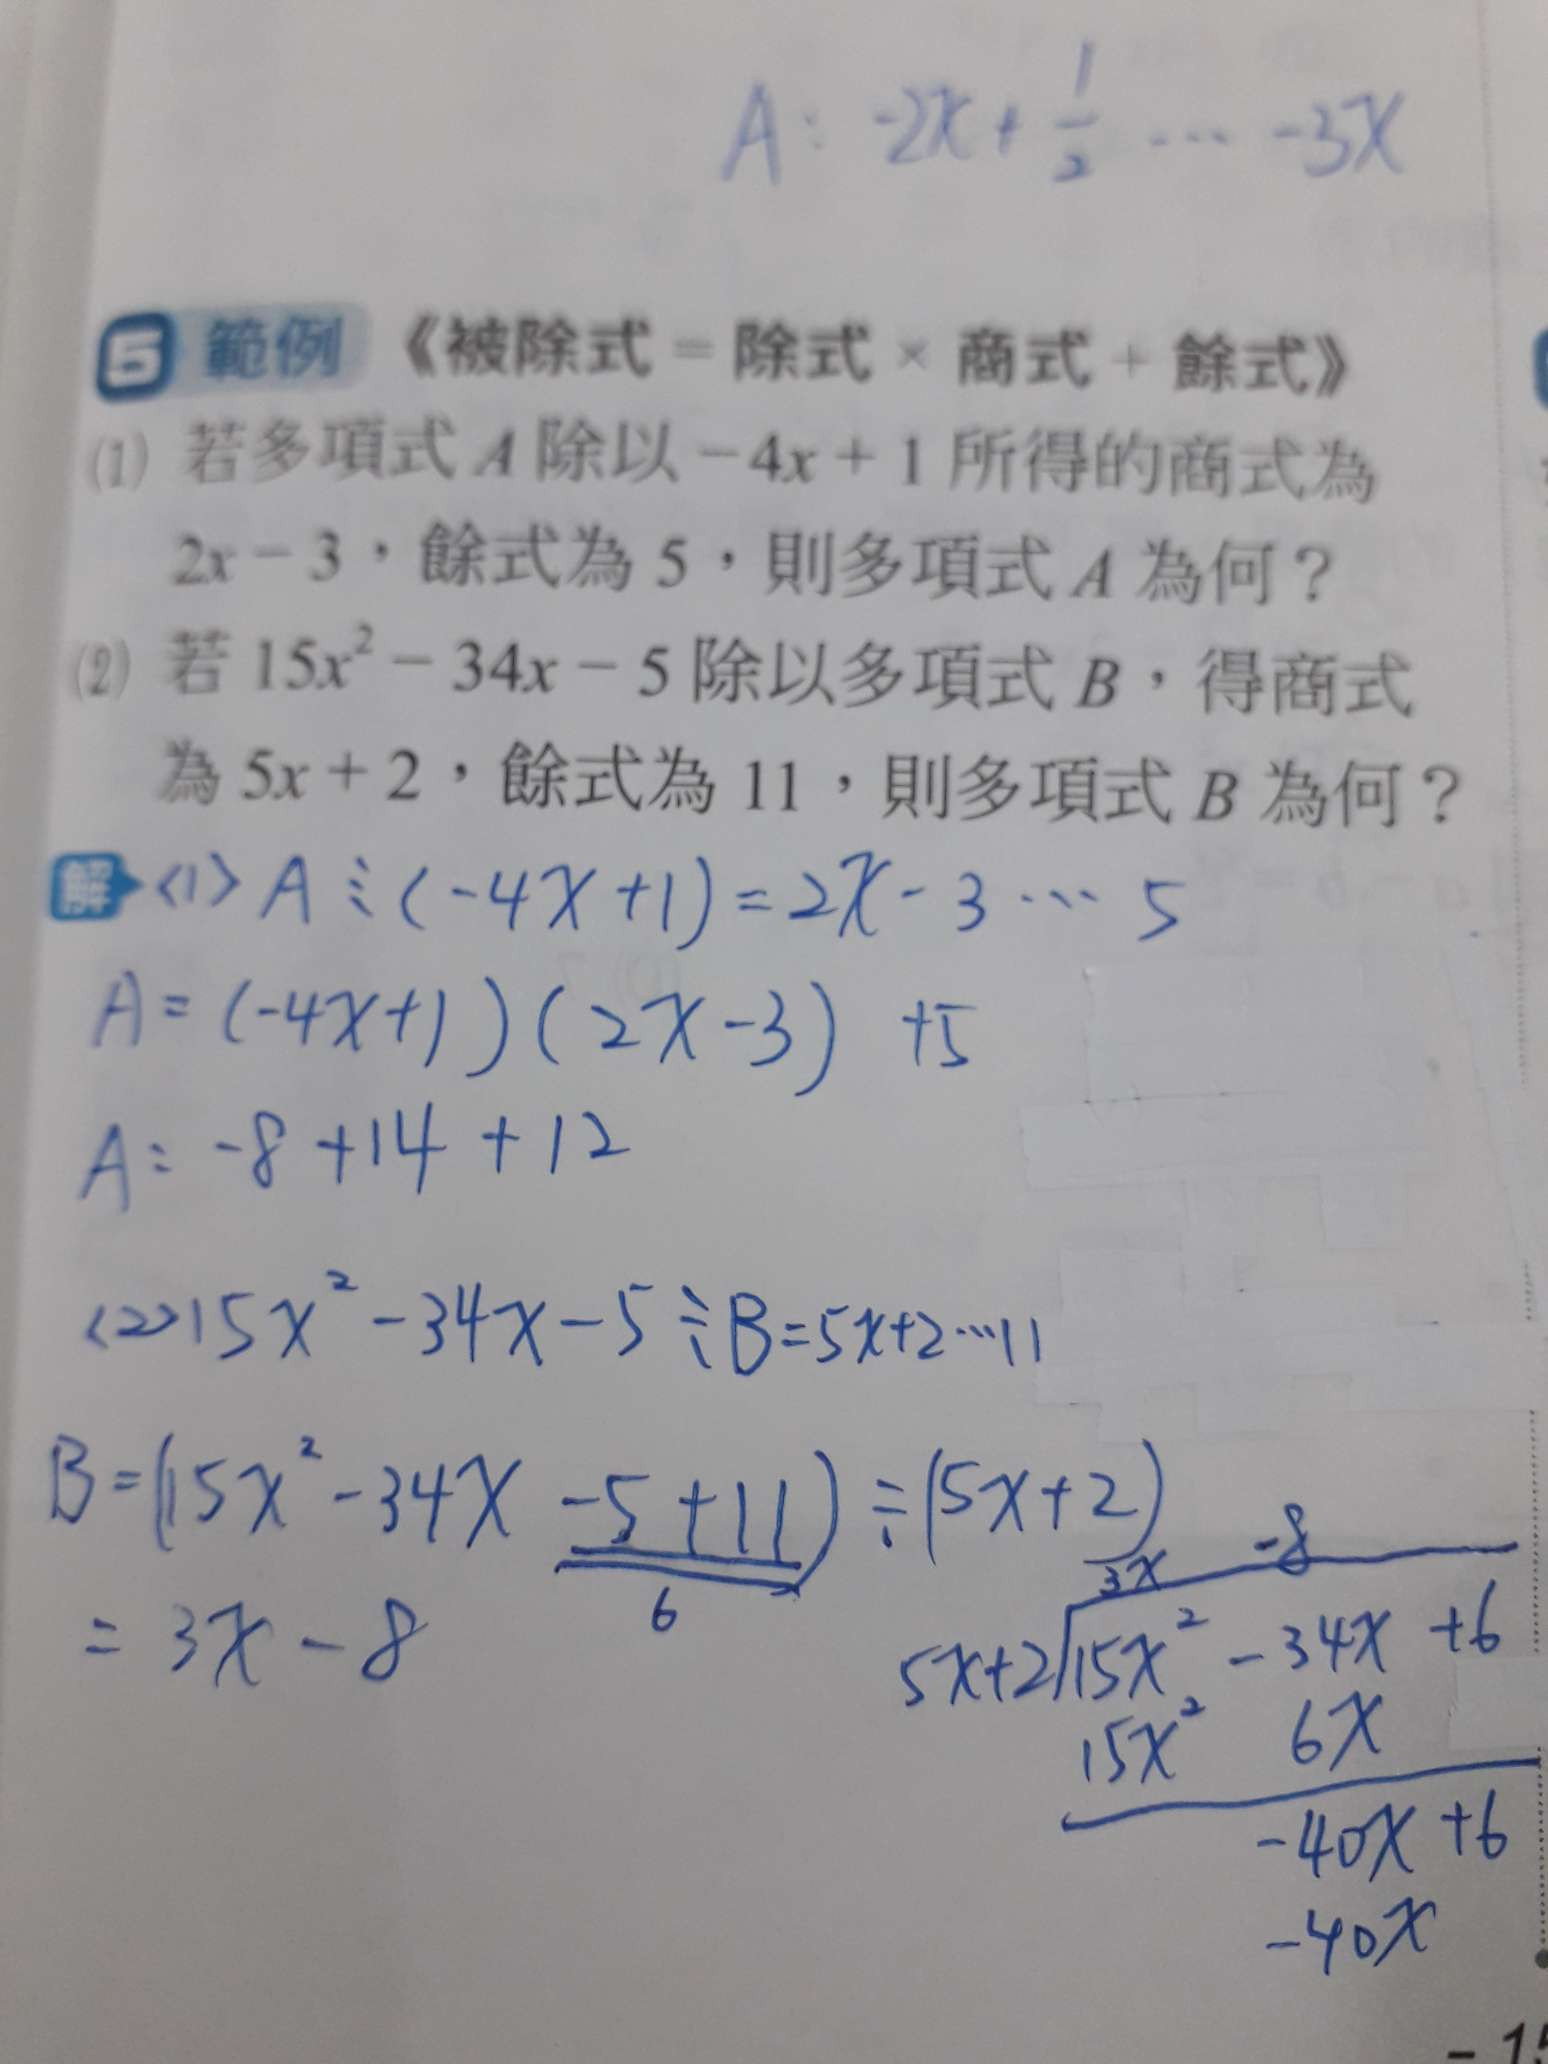 A: -2x + 1/2 ... -3x
5 範例 《被除式 = 除式 × 商式 + 餘式》
(1) 若多項式 A 除以 -4x + 1 所得的商式為
2x - 3，餘式為 5，則多項式 A 為何？
(2) 若 15x² - 34x - 5 除以多項式 B，得商式
為 5x + 2，餘式為 11，則多項式 B 為何？
解 <1> A ÷ (-4x+1) = 2x - 3 ... 5
A = (-4x+1)(2x-3) +5
A: -8 +14 +12
<2> 15x² - 34x - 5 ÷ B = 5x+2 ... 11
B = (15x² - 34x -5 +11) ÷ (5x+2)
6
= 3x - 8
3x -8
5x+2 15x² - 34x +6
15x² 6x
-40x +6
-40x